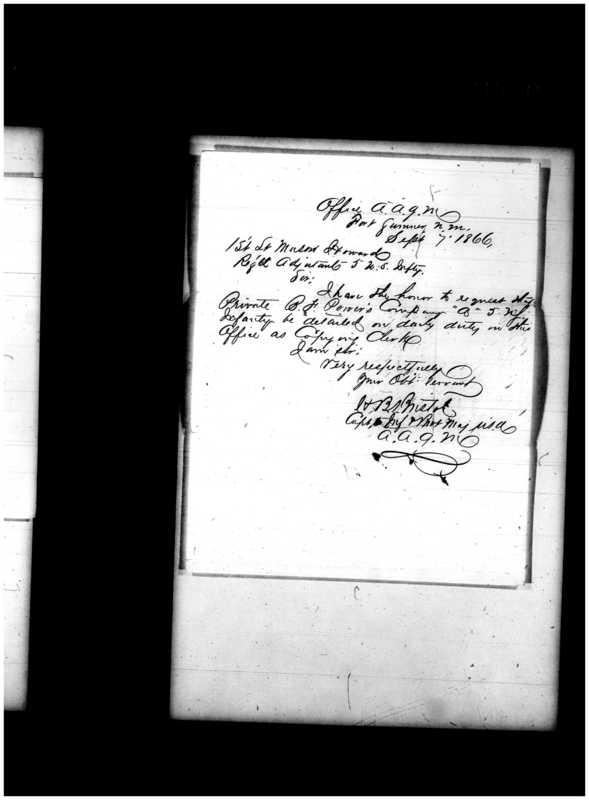 Office A.A.Q.M
Fort Sumner N.M.
Sept 7th 1866,
1st Lt Mason Howard
Regtl Adjutant 5 U.S. Infty.
Sir;
I have the honor to request that
Private B. F. Powers Company "A" 5 U.S.
Infantry be detailed on daily duty in this
Office as Copying Clerk
I am Sir;
Very respectfully
Your Obt. Servant
H B Bristol
Capt 5 Inf & Bvt Maj USA
A.A.Q.M